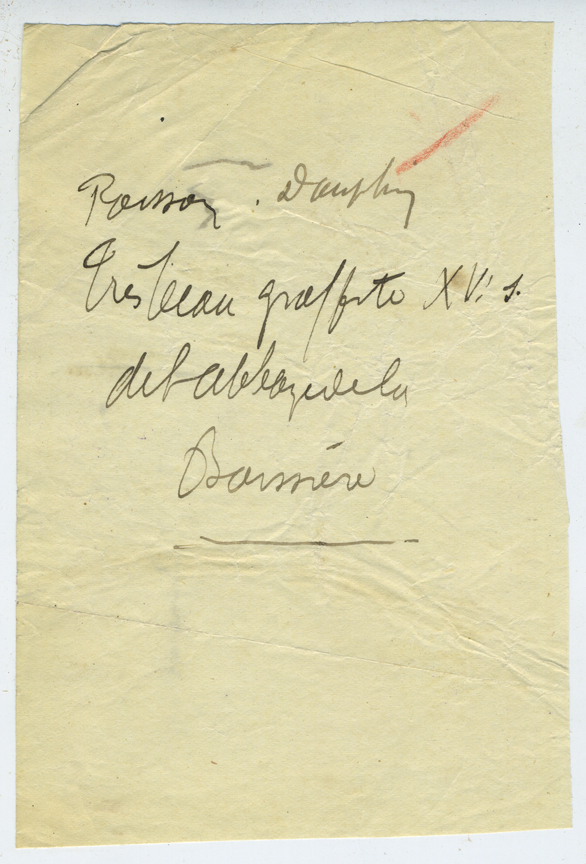 Poisson. Dauphin
Très beau graffite XVe s.
de l'abbaye de la
Boissière